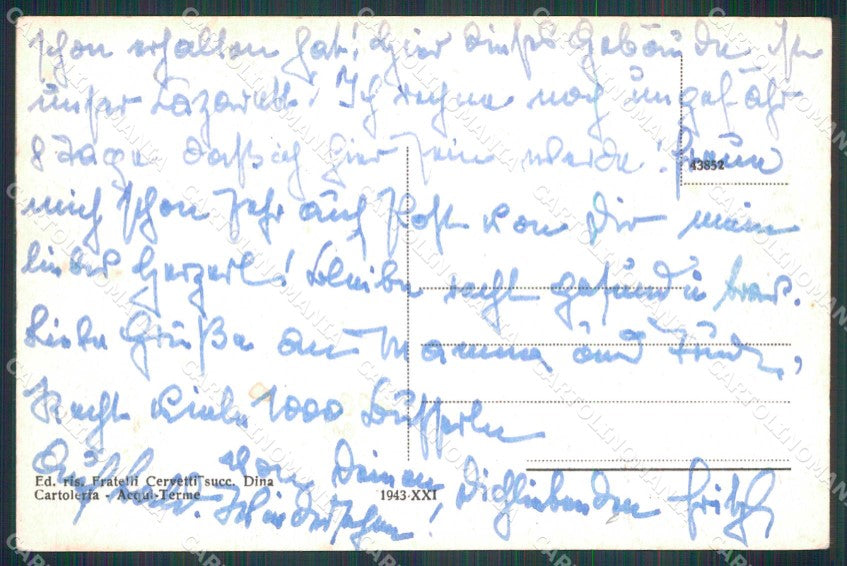 schon erhalten hat! Hier dieses Gebäude ist
unser Lazarett! Ich rechne noch ungefähr
8 Tage daß ich hier sein werde! Freue
43852
mich schon sehr auf Post von Dir mein
liebes Herzerl! Bleibe recht gesund u. brav.
Liebe Grüße an Mamma und
Recht viele 1000 Busserln
von Deinen Dichliebenden Fritzl
Auf bald. Wiedersehen!
Ed. ris. Fratelli Cervetti succ. Dina
Cartoleria - Acqui-Terme
1943-XXI
CARTOLINOMANIA